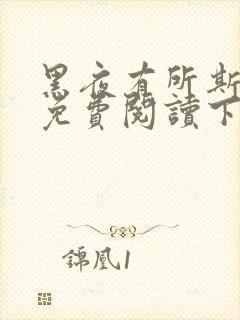 黑夜有所斯
免費閱讀下
錦凰1